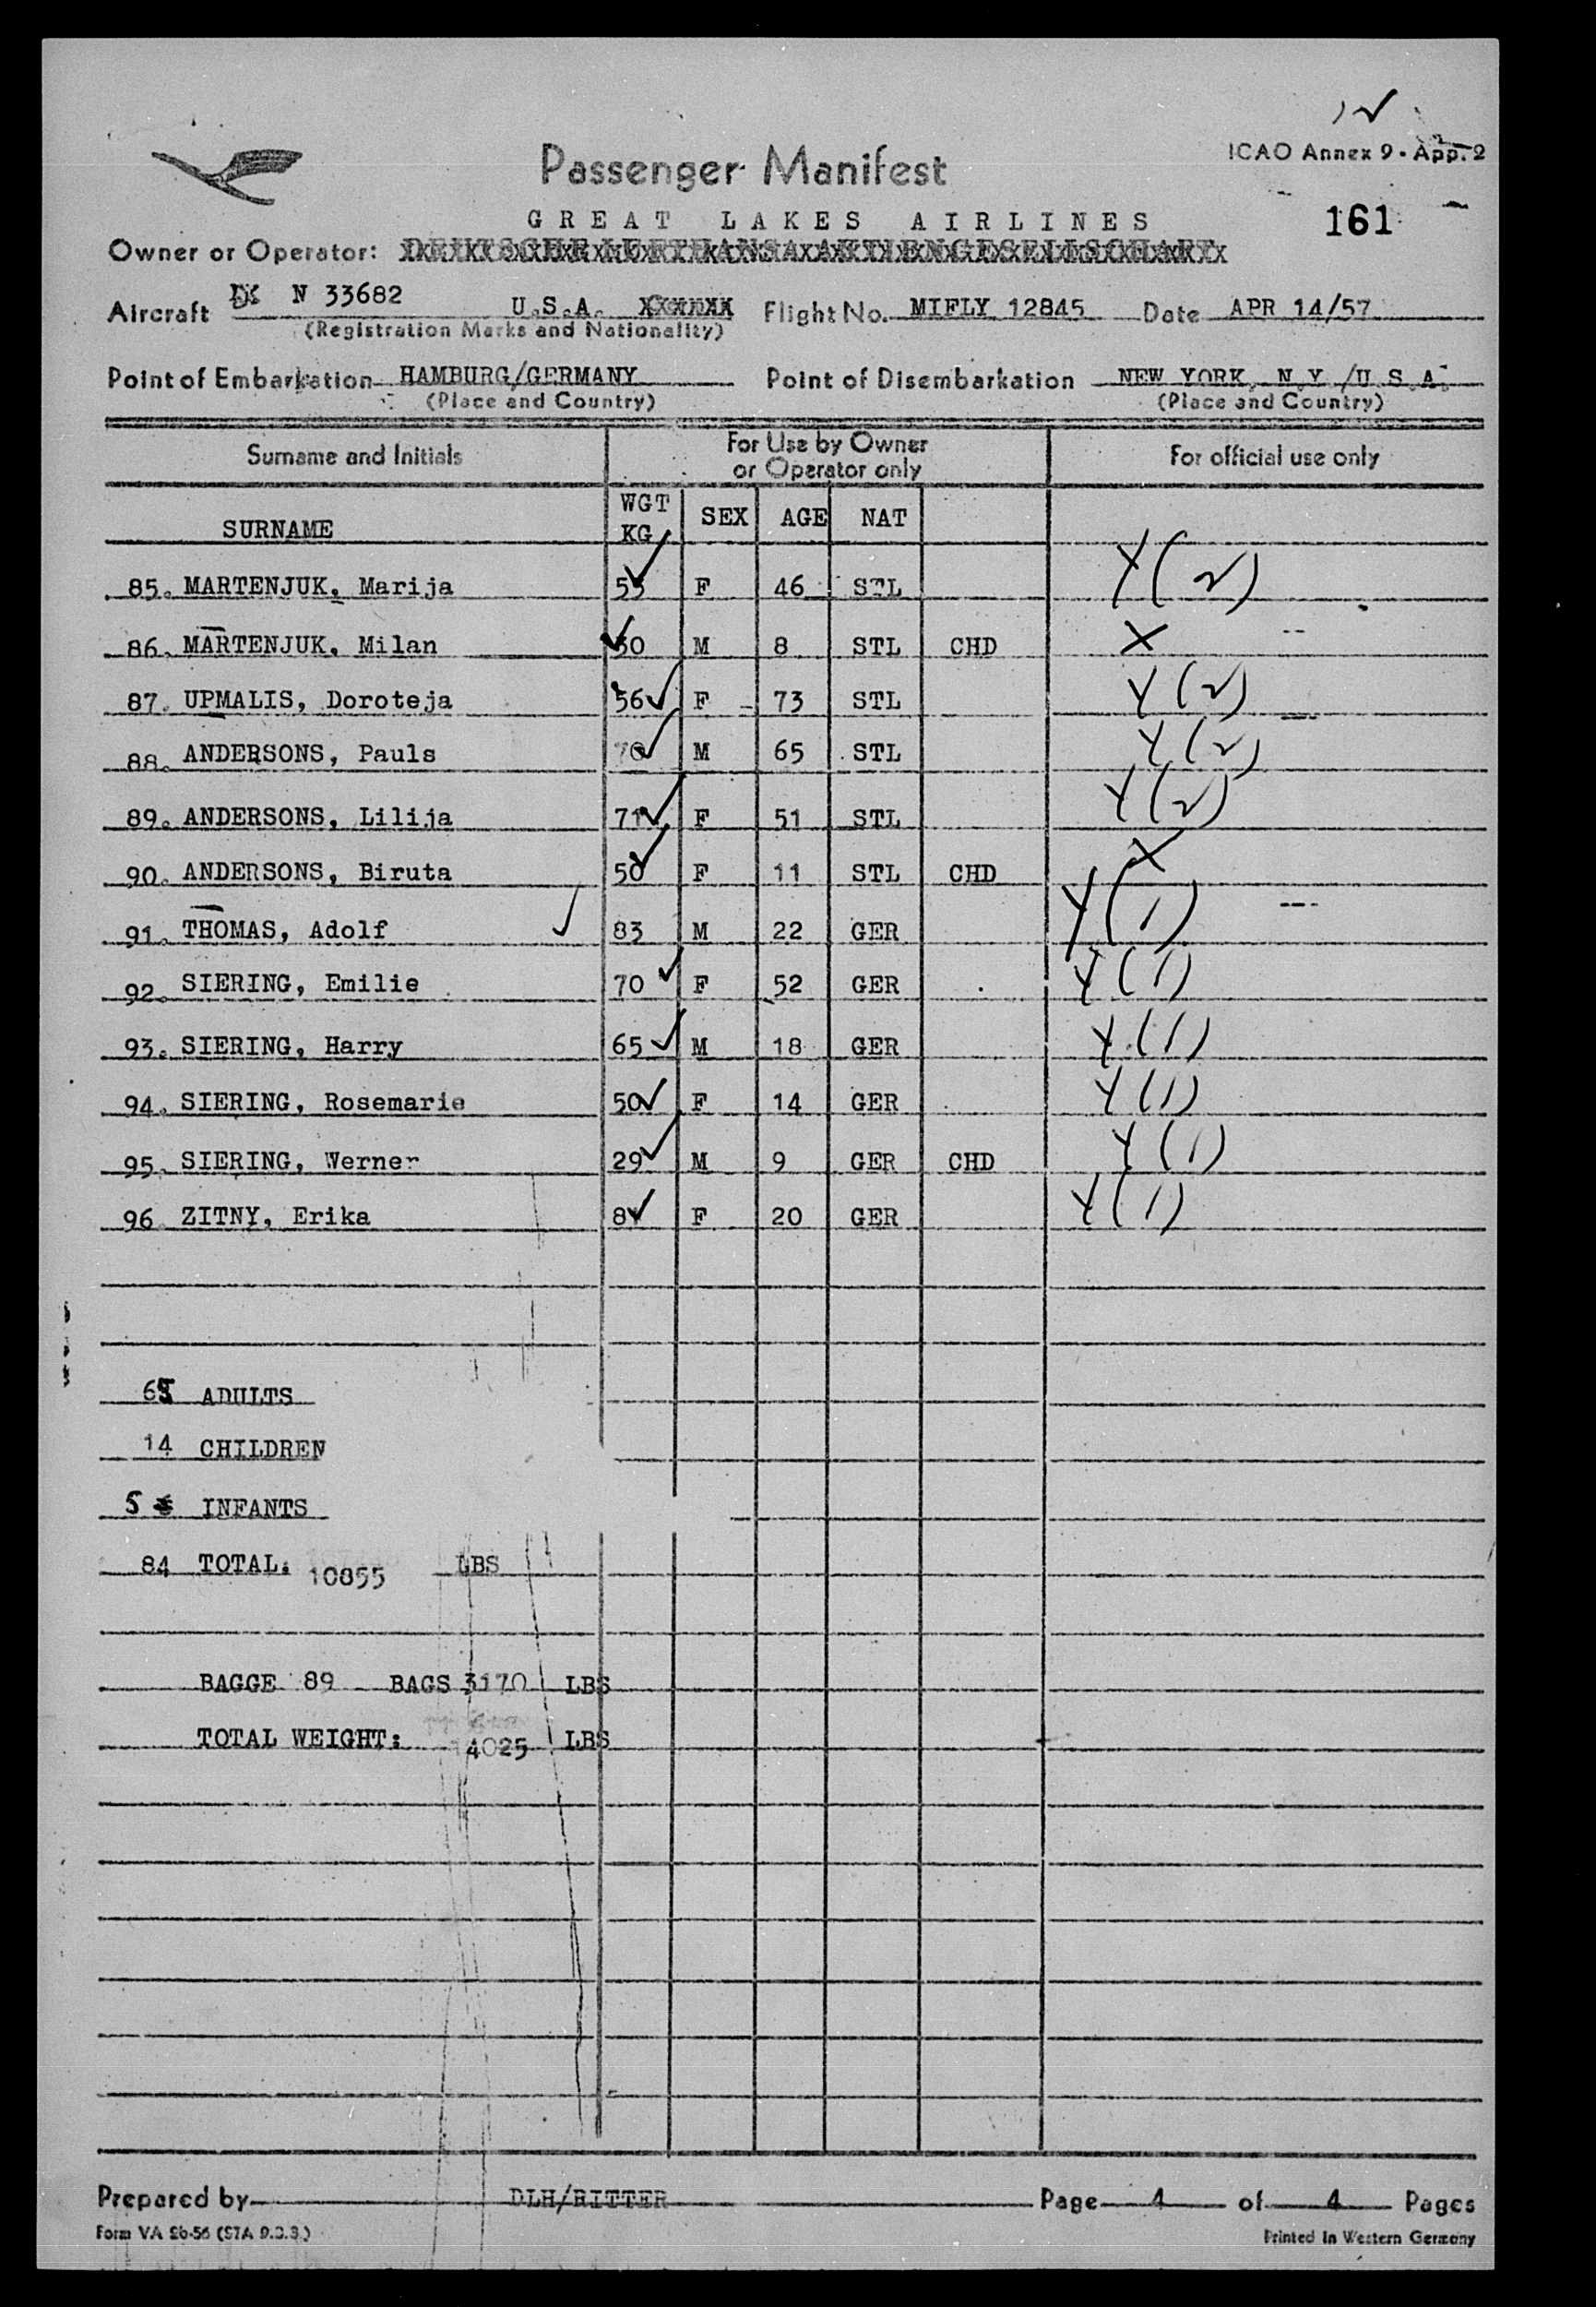 ICAO Annex 9 - App. 2
Passenger Manifest
161
GREAT LAKES AIRLINES
Owner or Operator: DEUTSCHE LUFTHANSA AKTIENGESELLSCHAFT
Aircraft N 33682 U.S.A. Flight No. MIFLY 12845 Date APR 14/57
(Registration Marks and Nationality)
Point of Embarkation HAMBURG/GERMANY Point of Disembarkation NEW YORK, N.Y./U.S.A.
(Place and Country) (Place and Country)
Surname and Initials For Use by Owner or Operator only For official use only
SURNAME WGT KG SEX AGE NAT
85. MARTENJUK, Marija 53 F 46 STL Y (2)
86. MARTENJUK, Milan 30 M 8 STL CHD X
87. UPMALIS, Doroteja 56 F 73 STL Y (2)
88. ANDERSONS, Pauls 70 M 65 STL Y (2)
89. ANDERSONS, Lilija 71 F 51 STL Y (2)
90. ANDERSONS, Biruta 50 F 11 STL CHD X
91. THOMAS, Adolf 83 M 22 GER Y (1)
92. SIERING, Emilie 70 F 52 GER Y (1)
93. SIERING, Harry 65 M 18 GER Y (1)
94. SIERING, Rosemarie 50 F 14 GER Y (1)
95. SIERING, Werner 29 M 9 GER CHD Y (1)
96 ZITNY, Erika F 20 GER Y (1)
65 ADULTS
14 CHILDREN
5 INFANTS
84 TOTAL: 10855 LBS
BAGGE 89 BAGS 3170 LBS
TOTAL WEIGHT: 14025 LBS
Prepared by DLH/RITTER Page 4 of 4 Pages
Form VA 26-56 (STA 9.3.3.) Printed in Western Germany